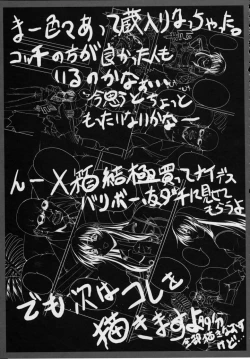 まー色々あって蔵入りなっちゃった。
コッチの方が良かった人も
いるのかなぁ…
と思うとちょっと
もったいないかなー
んーX箱結極買ってナイデス
バリボー、友ダチに見せて
もらうよ
でも次はコレを
描きますよ